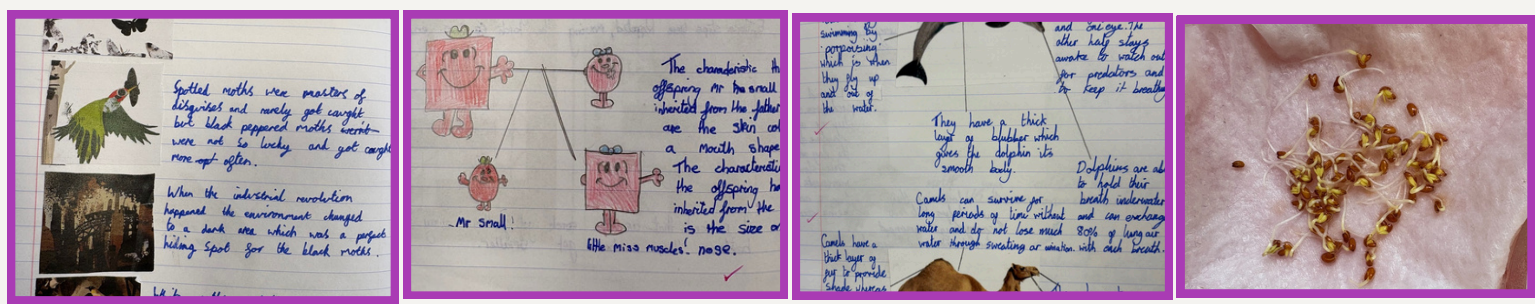 Spotted moths were masters of
disguises and rarely got caught
but black peppered moths
were not so lucky and got caught
more often.
When the industrial revolution
happened the environment changed
to a dark area which was a perfect
hiding spot for the black moths.
The characteristic th
offspring Mr small
inherited from the father
are the skin col
a mouth shape
The characteristic
the offspring ha
inherited from the
is the size or
nose.
Mr Small!
little miss muscles!
swimming by
porpoising
which is when
they fly up
and out of
the water.
and one eye. The
other half stays
awake to watch out
for predators and
to keep it breathi
They have a thick
layer of blubber which
gives the dolphin its
smooth body.
Dolphins are ab
to hold their
breath underwater
and can exchange
80% of lung air
with each breath.
Camels can survive for
long periods of time without
water and do not lose much
water through sweating or urination.
Camels have a
thick layer of
fur to provide
shade whereas